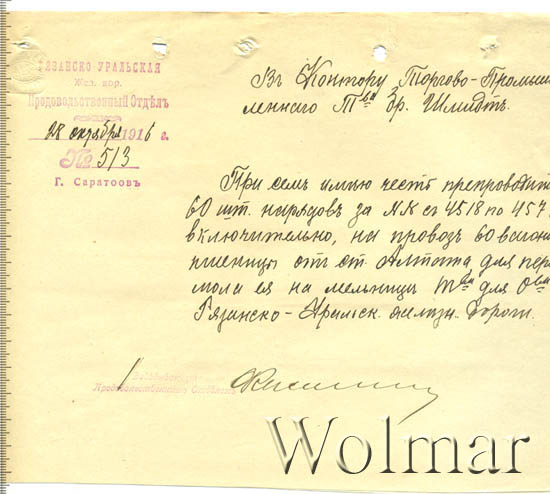 РЯЗАНСКО УРАЛЬСКАЯ
Жел. дор.
Продовольственный Отдѣлъ
28 октября 1916 г.
№ 513
Г. Саратовъ
Въ Контору Торгово-Промыш
леннаго Т-ва Бр. Шмидтъ.
При семъ имѣю честь препроводить
60 шт. нарядовъ за №№ съ 4518 по 457
включительно, на провозъ 60 вагон
пшеницы отъ ст. Алтата для пере
мола ея на мельницѣ Т-ва для
Рязанско-Уральск. желѣзн. дороги.
Завѣдывающій
Продовольственнымъ Отдѣломъ
Wolmar